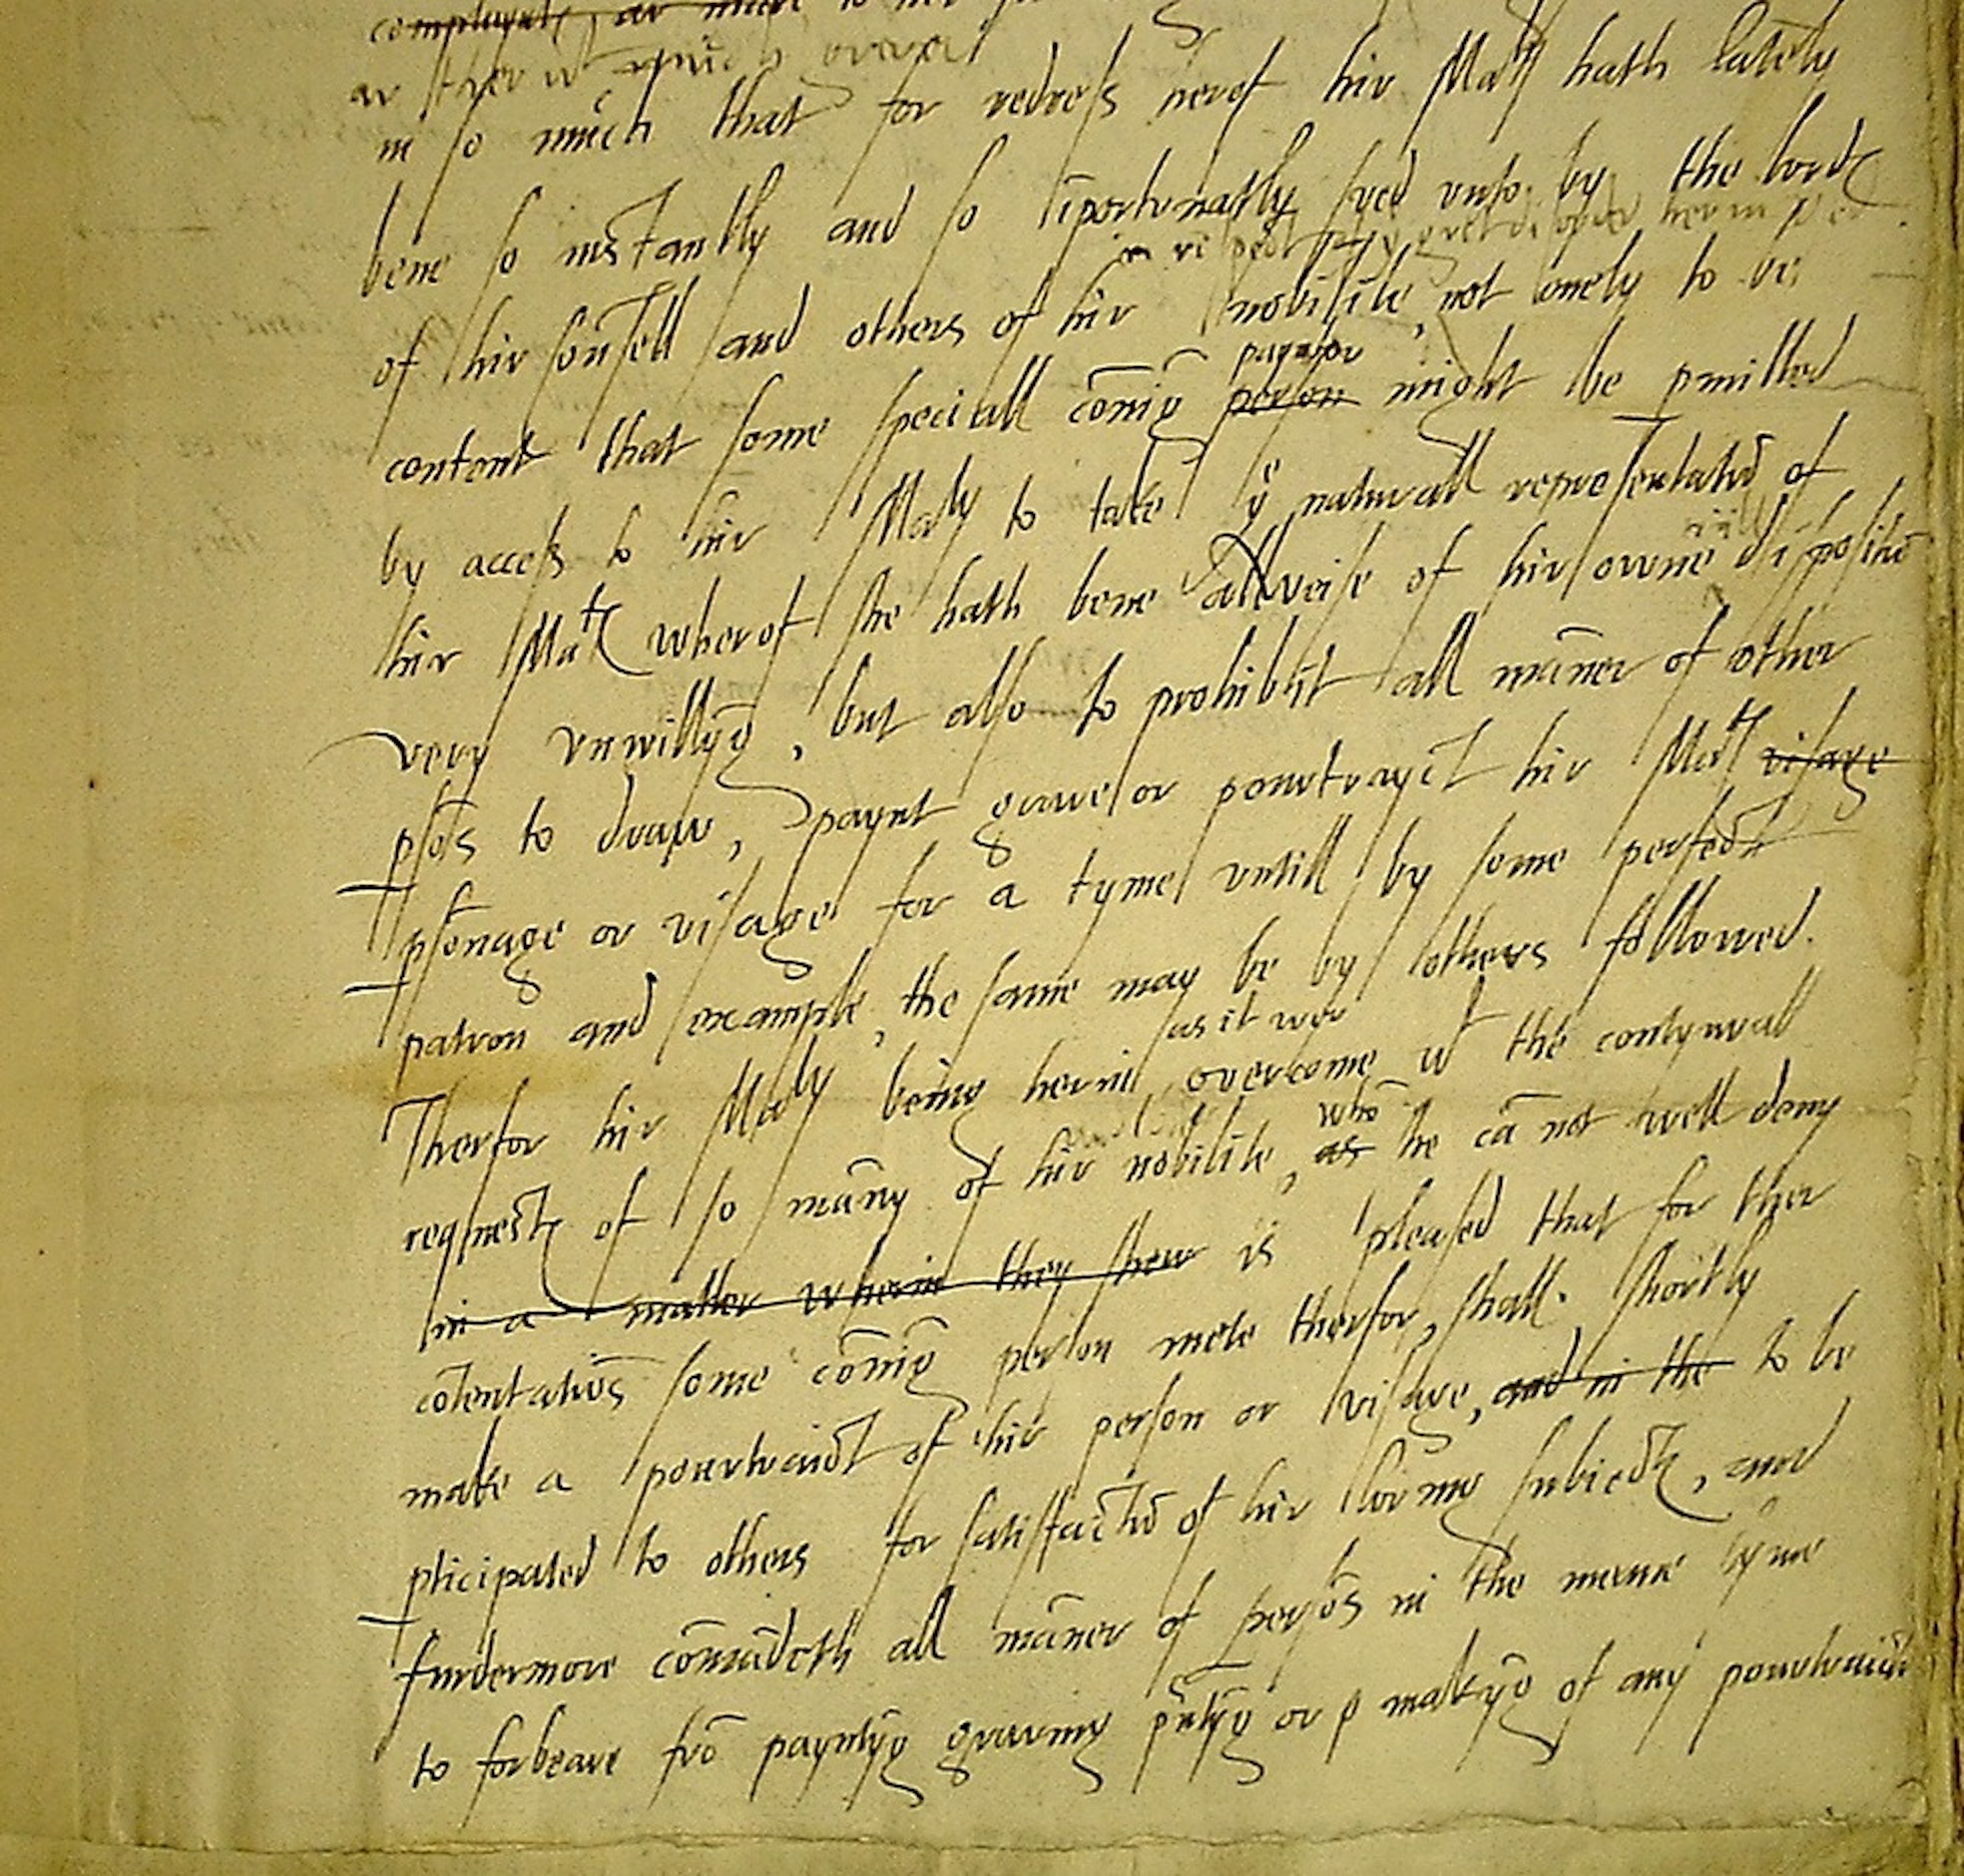 in so much that for redress herof hir Maty hath lately
bene so instantly and so īportunatly sued unto by the lords
in respect
of hir Counsell and others of hir nobilite, not onely to be
paynter
content that some speciall cōnīg person might be pmitted
by access to hir Maty to take yᵉ naturall representatiō of
hir Matᵉ wherof she hath bene allweise of hir owne dispositiō
very vnwillyg̃, but also to prohibit all māner of other
psōs to draw, paynt grave or pourtrayct hir Matˢ visage
psonage or visage for a tyme untill by some perfect
patron and example, the same may be by others followed.
as it wer
Therfor hir Maty being herin overcome wᵗ the contynuall
whō
requests of so māny of hir nobilite, as he cā not well deny
in a matter wherin they shew is pleased that for ther
cōtentatiōs some cōnīg person mete therfor, shall shortly
make a pourtraict of hir person or visage, and in the to be
pticipated to others for satisfactiō of hir loving subiects, and
furdermore cōmādeth all māner of persōs in the meane tyme
to forbeare frō payntyg̃ graving pntyg̃ or p makyg̃ of any pourtraict